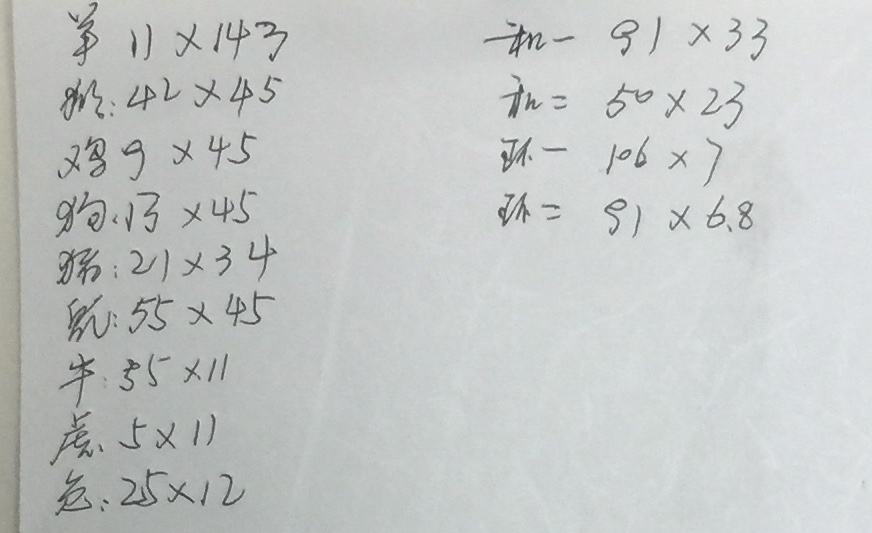 羊 11×143
猴:42×45
鸡 9×45
狗:13×45
猪:21×34
鼠:55×45
牛:35×11
虎:5×11
兔:25×12
和一 91×33
和二 50×23
环一 106×7
环二 91×6.8